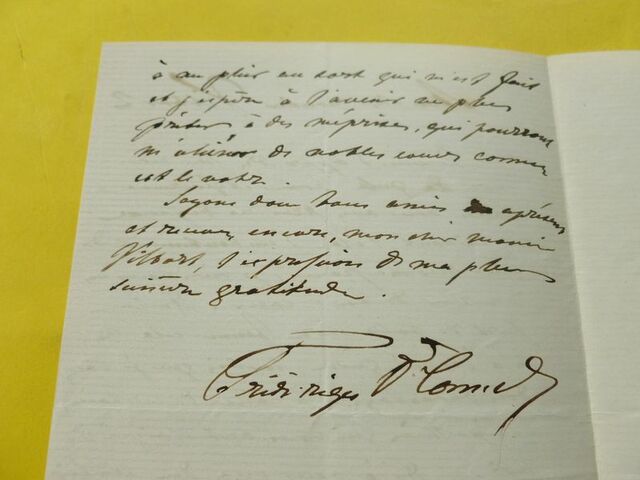 à au plus au sort qui m'est fait
et j'espère à l'avenir ne plus
prêter à des méprises, qui pourraient
m'aliéner de nobles cœurs comme
est le votre.
Soyons donc bons amis après
et recevez encore, mon cher monsieur
Vilbort, l'expression de ma plus
sincère gratitude.